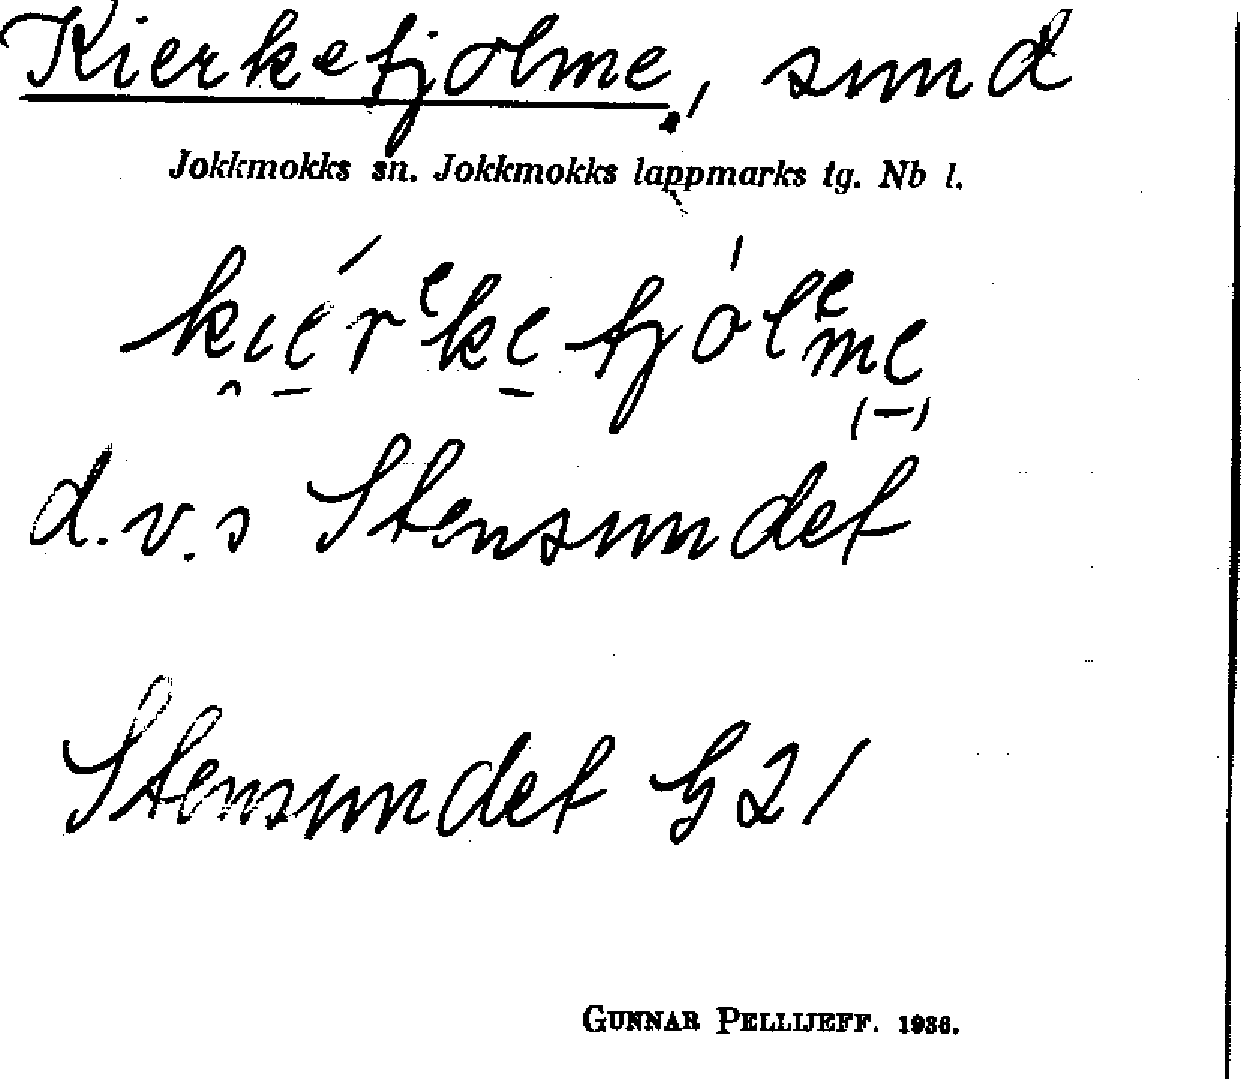 Kierketjolme, sund
Jokkmokks sn. Jokkmokks lappmarks tg. Nb l.
kiérᵉke tjólᵉme
d.v.s Stensundet
Stensundet G 21
GUNNAR PELLIJEFF. 1936.